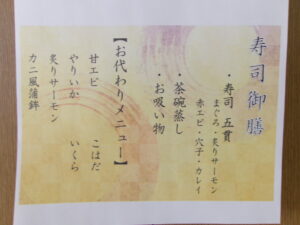 寿司御膳
・寿司 五貫
まぐろ・炙りサーモン
赤エビ・穴子・カレイ
・茶碗蒸し
・お吸い物
【お代わりメニュー】
甘エビ こはだ
やりいか いくら
炙りサーモン
カニ風蒲鉾